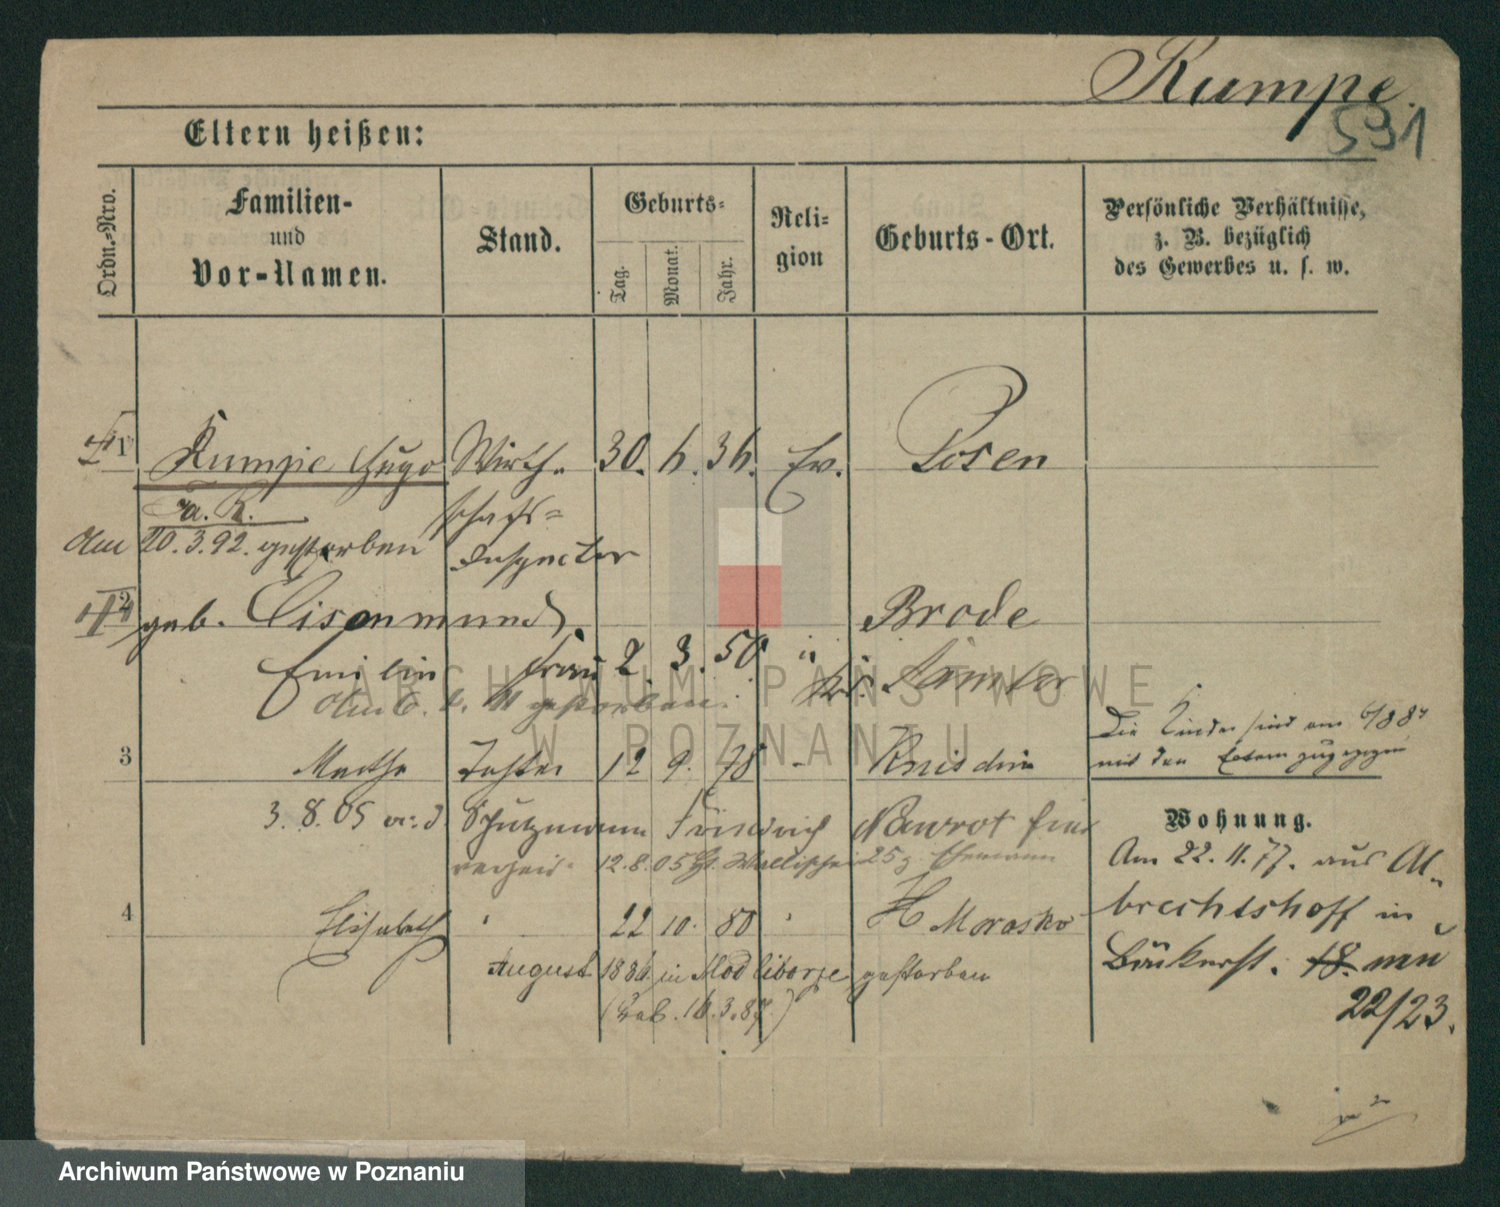 Rumpe.
591
Eltern heißen:
Ordn.-Nro.
Familien-
und
Vor-Namen.
Stand.
Geburts-
Tag.
Monat.
Jahr.
Reli-
gion
Geburts-Ort.
Persönliche Verhältnisse,
z. B. bezüglich
des Gewerbes u. s. w.
1 Rumpe Hugo Wirth- 30. 6. 36. Ev. Posen
schafts-
Am 20.3.92. gestorben Inspector
2 geb. Eisenmund Brode
Emilie Frau 2 3. 50 " Kr. Samter
Am 6. gestorben.
Die Kinder sind am
mit den Eltern zugezogen
3 Martha Tochter 12 9. 78 -
3. 8. 05 Schutzmann Friedrich Nawrot
12.8.05 Wallischei 25 Ehemann
4 Elisabeth " 22 10. 80 " Morasko
August 1886 in Modliborze gestorben
16.3.87.)
Wohnung.
Am 22. 11. 77. aus Al-
brechtshoff in
Bäckerst. 18. neu
22/23.
ARCHIWUM PAŃSTWOWE
W POZNANIU
Archiwum Państwowe w Poznaniu